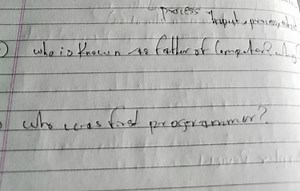 process Input, process,
who is Known as father of Computer?
who was first programmer?